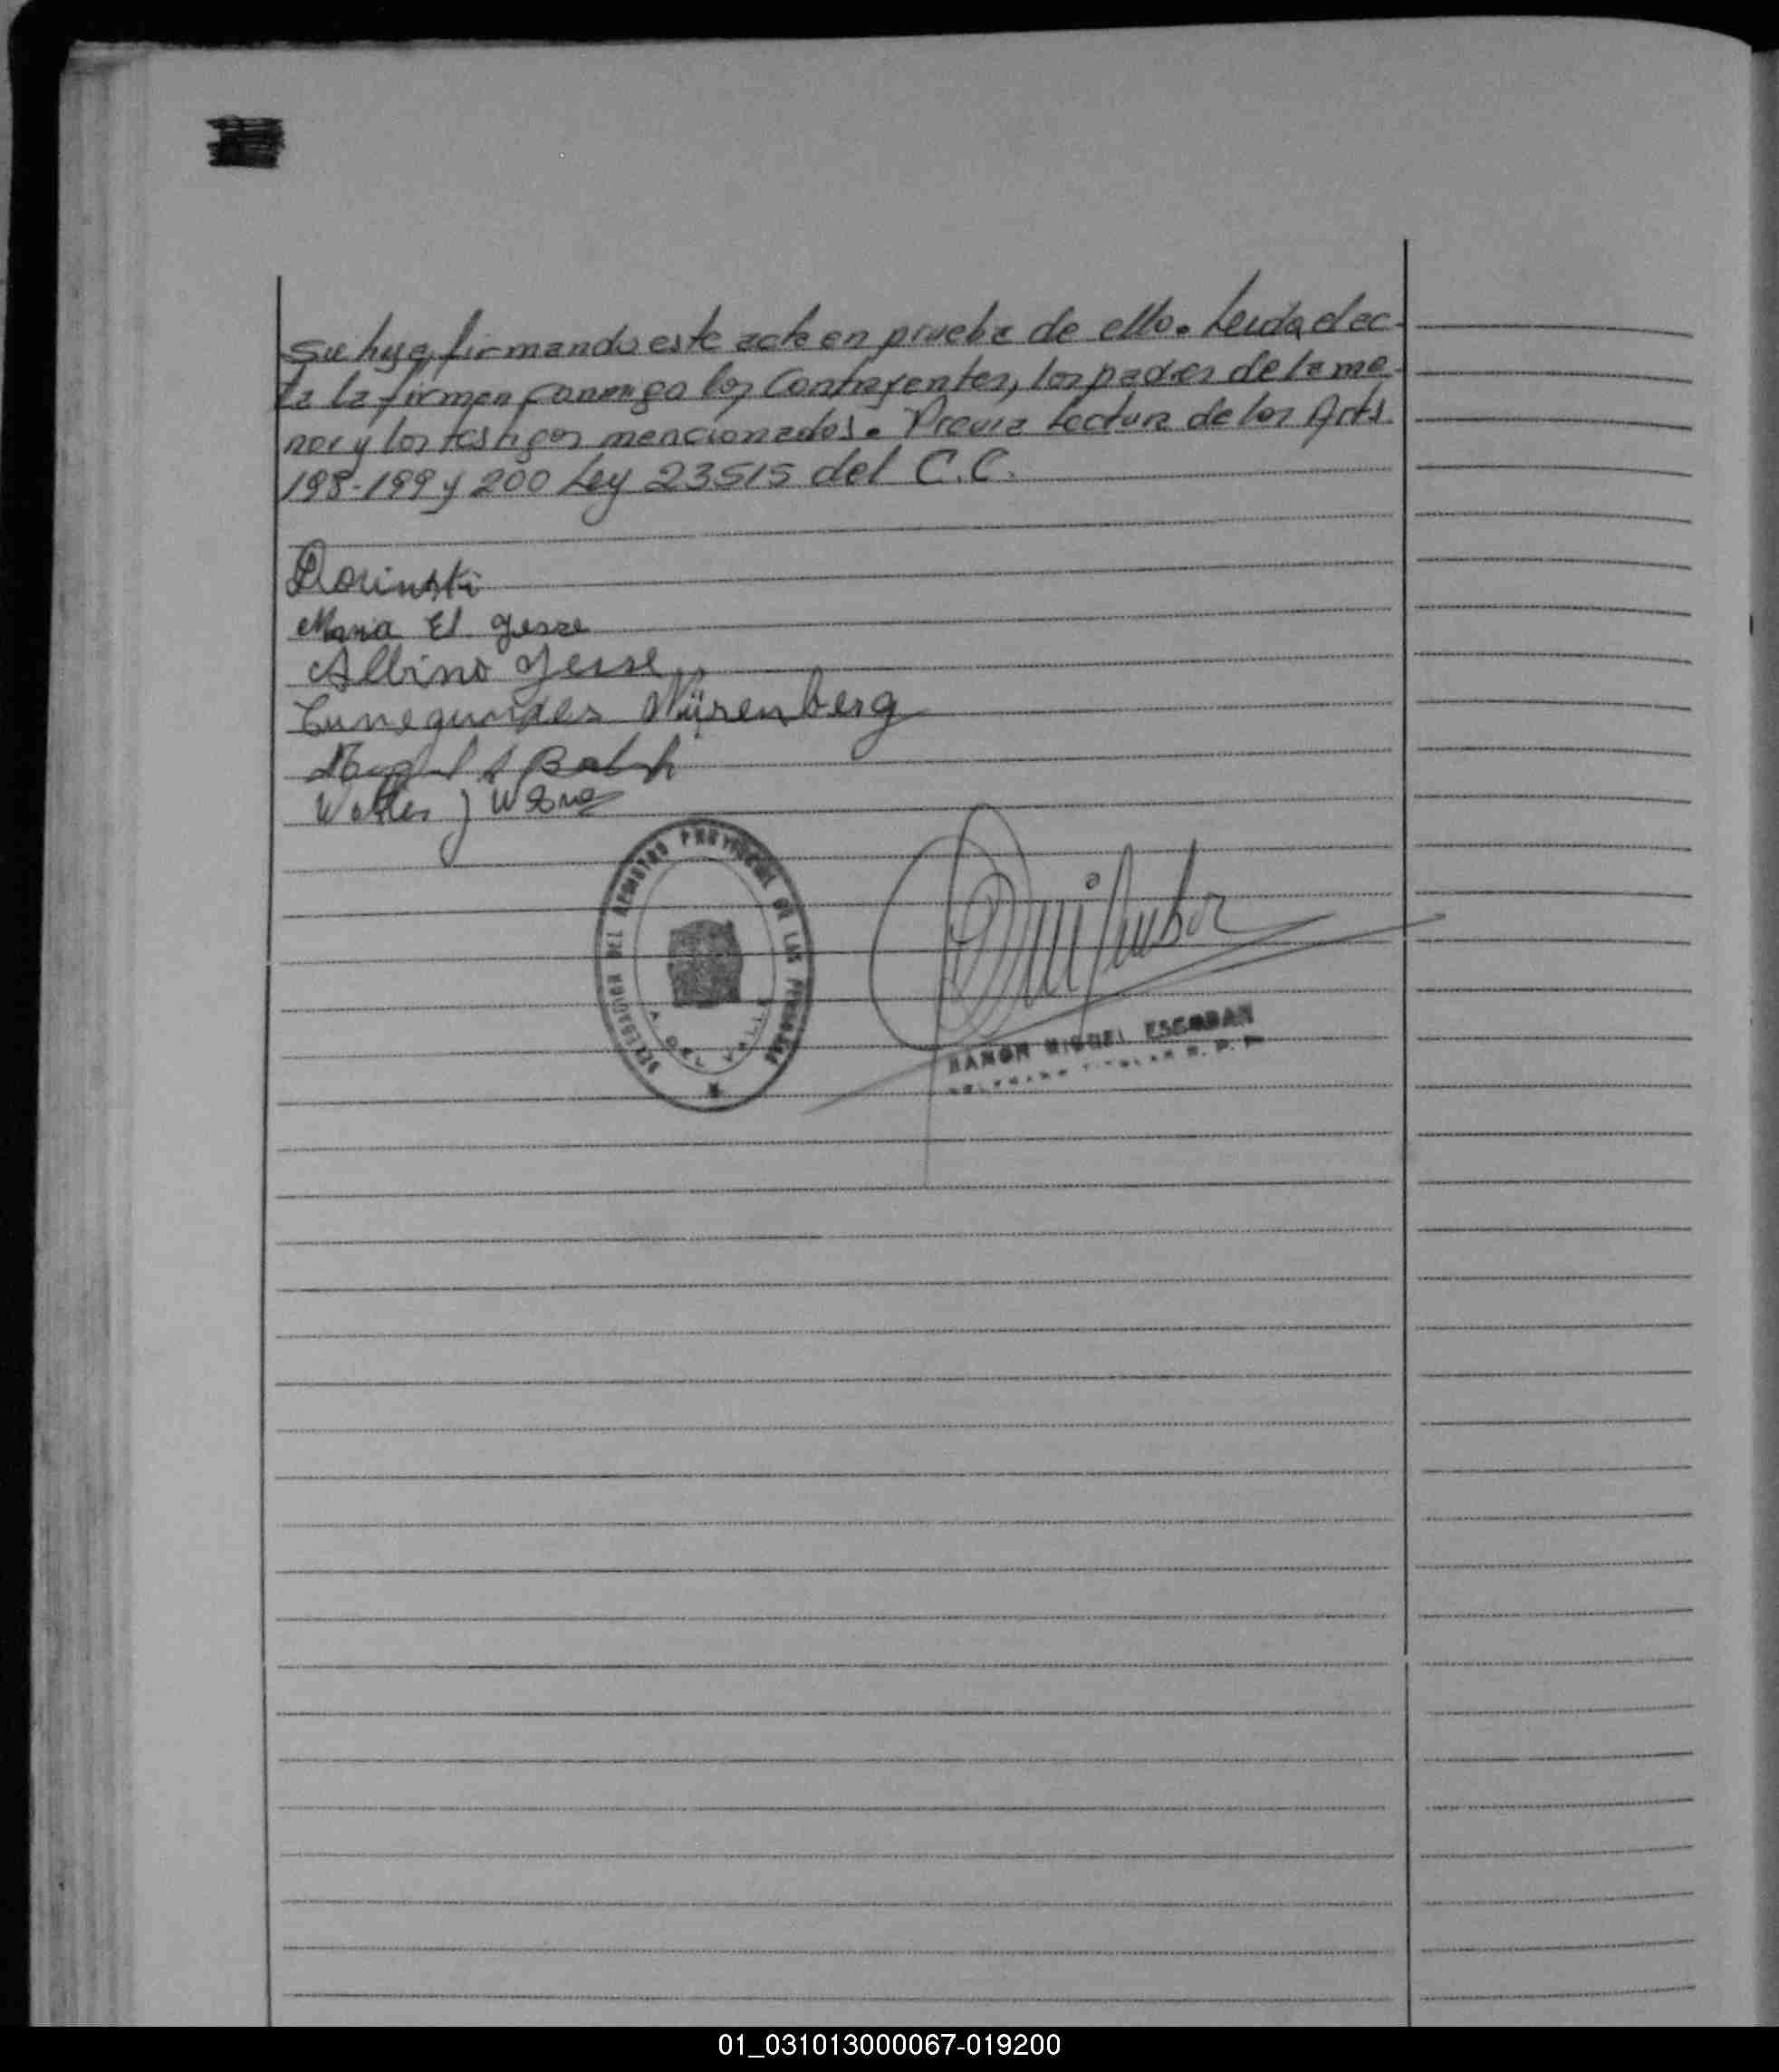 su hija, firmando este acta en prueba de ello. Leida el ac-
ta la firman conmigo los Contrayentes, los padres de la me-
nor y los testigos mencionados. Previa Lectura de los Arts.
198-199 y 200 Ley 23515 del C.C.
Maria El Jesse
Albino Jesse
Cunegundes Nÿrenberg
Walter J
DELEGACION DEL REGISTRO PROVINCIAL DE LAS PERSONAS
RAMON MIGUEL ESCOBAR
01_031013000067-019200